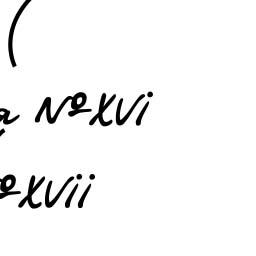 (
ą №XVI
ºXVII